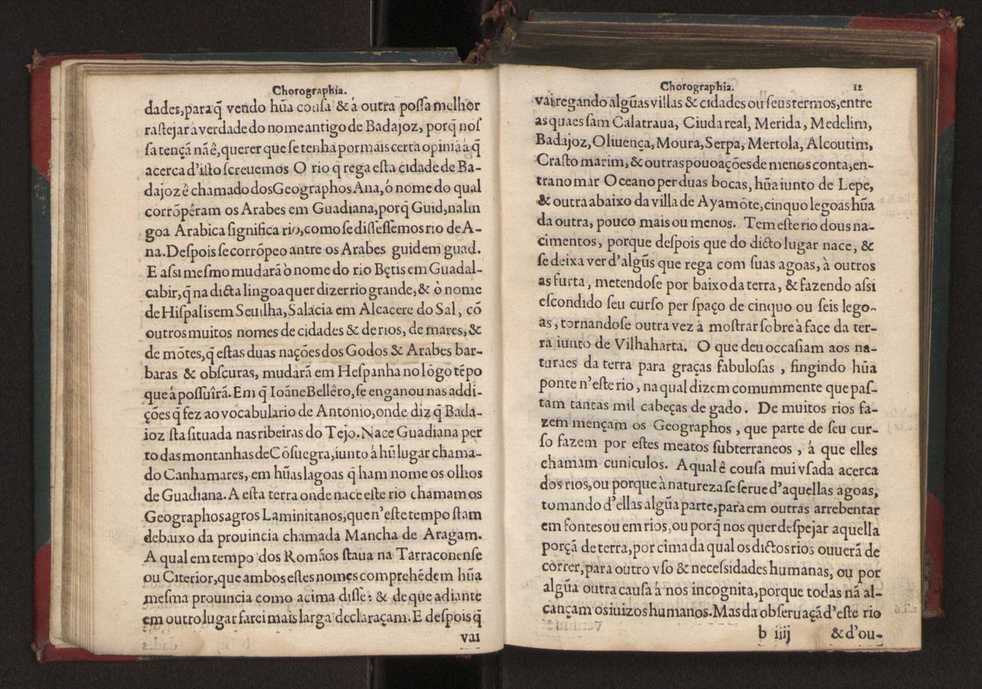 Chorographia.
dades,para q̃ vendo hũa cousa & à outra possa melhor
rastejar a verdade do nome antigo de Badajoz, porq̃ nos
sa tençã nã ê,querer que se tenha por mais certa opiniã à q̃
acerca d'isto screuemos O rio q̃ rega esta cidade de Ba-
dajoz ê chamado dos Geographos Ana, ó nome do qual
corrõpêram os Arabes em Guadiana, porq̃ Guid, na lin
goa Arabica significa rio, como se dissessemos rio de A-
na. Despois se corrõpeo antre os Arabes guid em guad.
E assi mesmo mudarã ò nome do rio Bętis em Guadal-
cabir, q̃ na dicta lingoa quer dizer rio grande, & ò nome
de Hispalis em Seuilha, Salacia em Alcacere do Sal, cõ
outros muitos nomes de cidades & de rios, de mares, &
de mõtes, q̃ estas duas nações dos Godos & Arabes bar-
baras & obscuras, mudarã em Hespanha no lõgo tẽpo
que à possuîrã. Em q̃ Ioãne Bellêro, se enganou nas addi-
ções q̃ fez ao vocabulario de Antonio, onde diz q̃ Bada-
ioz sta situada nas ribeiras do Tejo. Nace Guadiana per
to das montanhas de Cõsuegra, iunto à hũ lugar chama-
do Canhamares, em hũas lagoas q̃ ham nome os olhos
de Guadiana. A esta terra onde nace este rio chamam os
Geographos agros Laminitanos, que n'este tempo stam
debaixo da prouincia chamada Mancha de Aragam.
A qual em tempo dos Romãos staua na Tarraconense
ou Citerior, que ambos estes nomes comprehẽdem hũa
mesma prouincia como acima disse: & de que adiante
em outro lugar farei mais larga declaraçam. E despois q̃
vai
Chorographia. 12
vai regando algũas villas & cidades ou seus termos, entre
as quaes sam Calatraua, Ciuda real, Merida, Medelim,
Badajoz, Oliuença, Moura, Serpa, Mertola, Alcoutim,
Crasto marim, & outras pouoações de menos conta, en-
tra no mar Oceano per duas bocas, hũa iunto de Lepe,
& outra abaixo da villa de Ayamõte, cinquo legoas hũa
da outra, pouco mais ou menos. Tem este rio dous na-
cimentos, porque despois que do dicto lugar nace, &
se deixa ver d'algũs que rega com suas agoas, à outros
as furta, metendose por baixo da terra, & fazendo assi
escondido seu curso per spaço de cinquo ou seis lego-
as, tornandose outra vez à mostrar sobre à face da ter-
ra iunto de Vilhaharta. O que deu occasiam aos na-
turaes da terra para graças fabulosas, fingindo hũa
ponte n'este rio, na qual dizem comummente que pas-
tam tantas mil cabeças de gado. De muitos rios fa-
zem mençam os Geographos, que parte de seu cur-
so fazem por estes meatos subterraneos, à que elles
chamam cuniculos. Aqual ê cousa mui vsada acerca
dos rios, ou porque à natureza se serue d'aquellas agoas,
tomando d'ellas algũa parte, para em outras arrebentar
em fontes ou em rios, ou porq̃ nos quer despejar aquella
porçã de terra, por cima da qual os dictos rios ouuerã de
correr, para outro vso & necessidades humanas, ou por
algũa outra causa à nos incognita, porque todas nã al-
cançam os iuizos humanos. Mas da obseruaçã d'este rio
b iiij &d'ou-